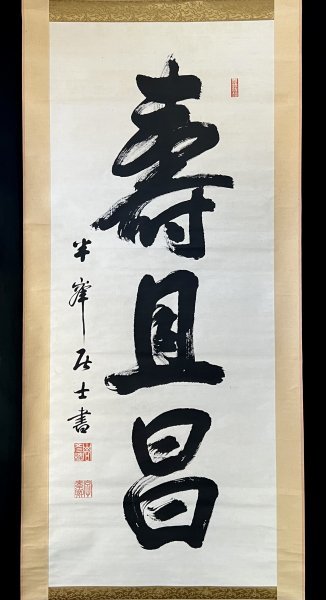 壽且昌
半峰居士書